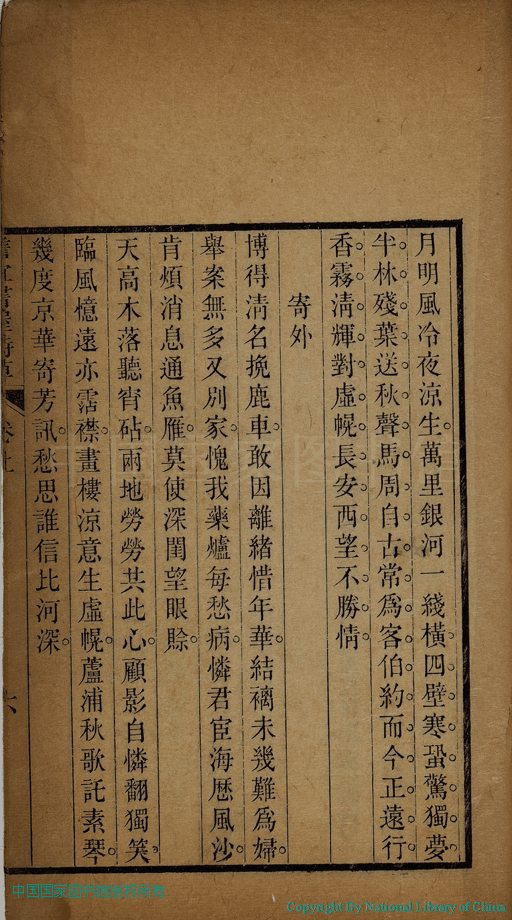 月明風冷夜涼生萬里銀河一綫橫四壁寒蛩驚獨夢
半林殘葉送秋聲馬周自古常爲客伯約而今正遠行
香霧淸輝對虛幌長安西望不勝情
寄外
博得淸名挽鹿車敢因離緒惜年華結褵未幾難爲婦
舉案無多又別家愧我藥爐每愁病憐君宦海歷風沙
肯煩消息通魚雁莫使深閨望眼賖
天高木落聽宵砧兩地勞勞共此心顧影自憐翻獨笑
臨風憶遠亦霑襟畫樓涼意生虛幌蘆浦秋歌託素琴
幾度京華寄芳訊愁思誰信比河深
卷上
六
Copyright By National Library of China